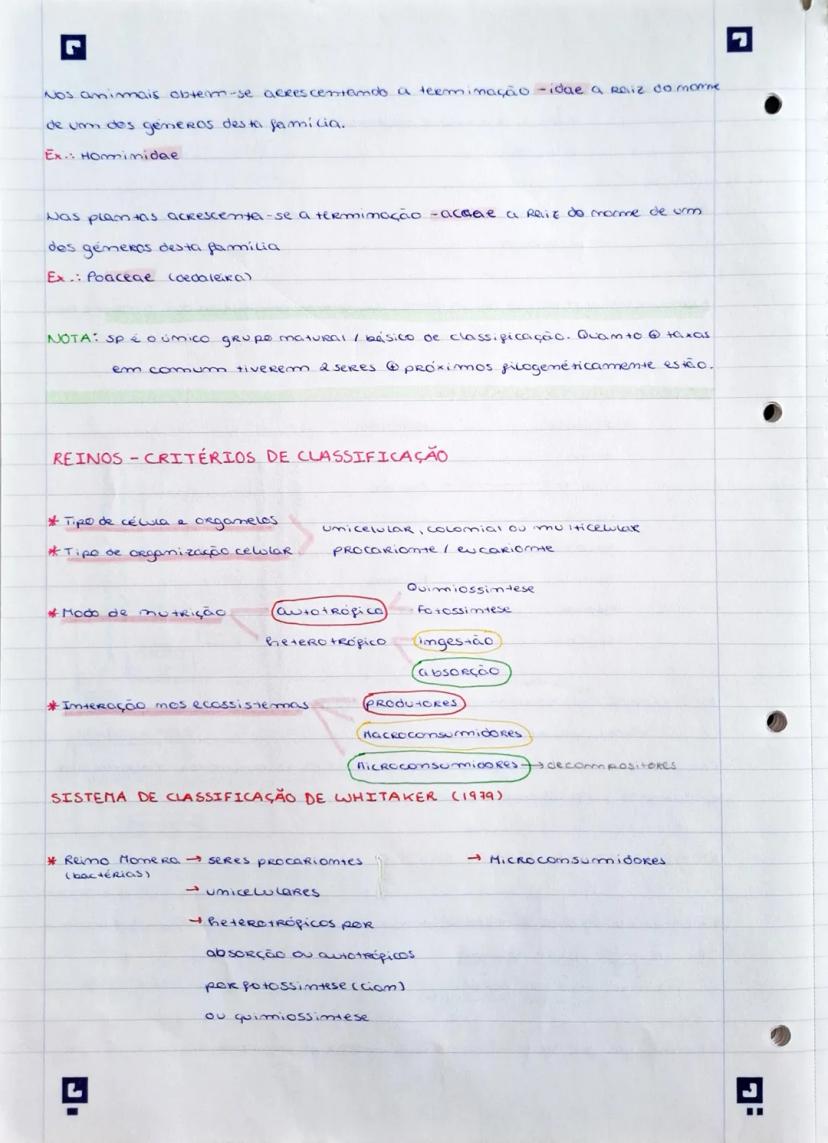 Nos animais obtem-se acrescentando a terminação -idae a raiz do nome
de um dos géneros desta família.
Ex.: Hominidae
Nas plantas acrescenta-se a terminação -aceae a raiz do nome de um
dos géneros desta família
Ex.: Poaceae (cedaleira)
NOTA: SP é o único grupo natural / básico de classificação. Quanto ⊕ taxas
em comum tiverem 2 seres ⊕ próximos filogenéticamente estão.
REINOS - CRITÉRIOS DE CLASSIFICAÇÃO
* Tipo de célula e organelos
unicelular, colonial ou multicelular
* Tipo de organização celular
procarionte / eucarionte
Quimiossintese
* Modo de nutrição
autotrófico
fotossintese
heterotrófico
ingestão
absorção
* Interação nos ecossistemas
produtores
Macroconsumidores
Microconsumidores → decompositores
SISTEMA DE CLASSIFICAÇÃO DE WHITAKER (1979)
* Reino Monera → seres procariontes → Microconsumidores
(bactérias)
→ unicelulares
→ heterotróficos por
absorção ou autotróficos
por fotossintese (cian)
ou quimiossintese